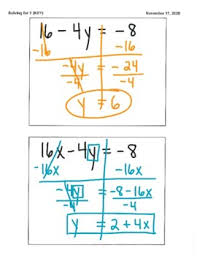 Solving for Y (KEY)
November 17, 2020
16 - 4y = -8
-16 -16
-4y = -24
-4 -4
y = 6
16x - 4y = -8
-16x -16x
-4y = -8 - 16x
-4 -4
y = 2 + 4x